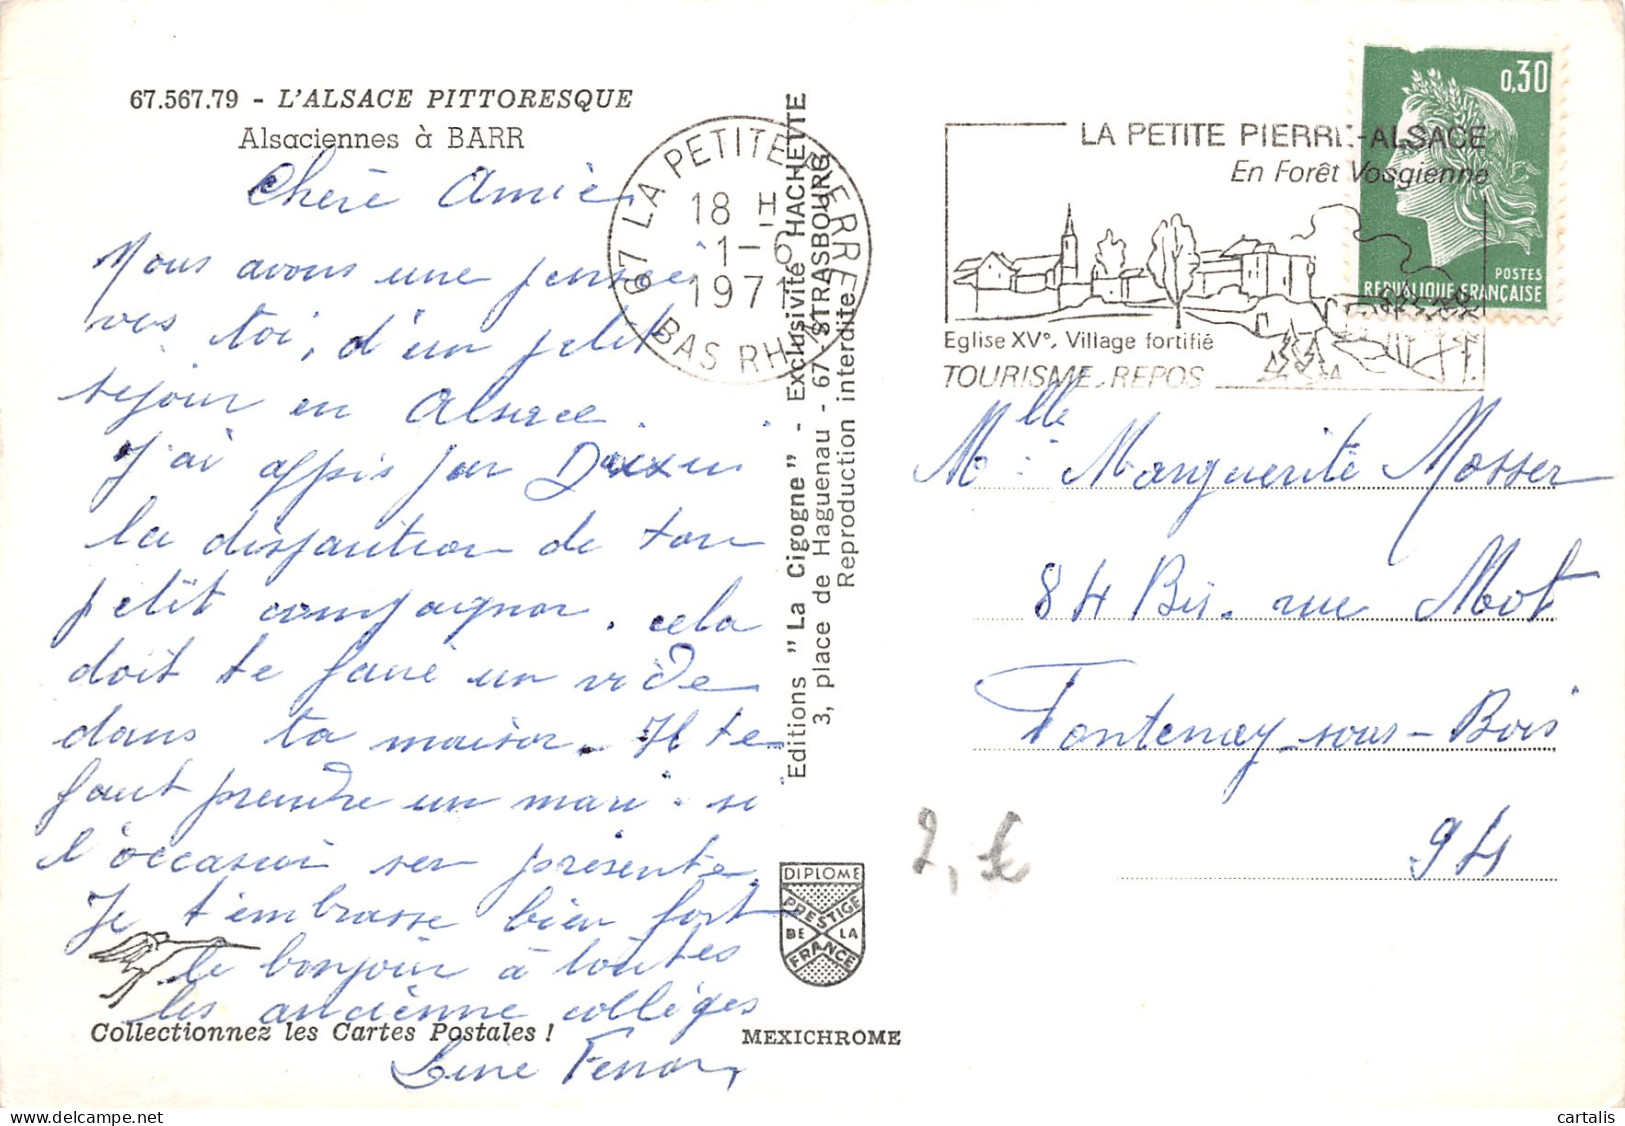 67.567.79 - L'ALSACE PITTORESQUE
Alsaciennes à BARR
Chère Amie
Nous avons une pensée
vers toi, d'un petit
séjour en Alsace.
J'ai appris par
la disparition de ton
petit compagnon. cela
doit te faire un vide
dans ta maison. Il te
faut prendre un mari. si
l'occasion s'en présente
Je t'embrasse bien fort
le bonjour à toutes
les ancienne collèges
Collectionnez les Cartes Postales !
MEXICHROME
67 LA PETITE PIERRE
18 H
1-6
1971
BAS RHIN
Editions "La Cigogne" - Exclusivité HACHETTE
3, place de Haguenau - 67 - STRASBOURG
Reproduction interdite
DIPLOME
PRESTIGE
DE LA
FRANCE
LA PETITE PIERRE-ALSACE
En Forêt Vosgienne
Eglise XV°, Village fortifié
TOURISME, REPOS
0,30
POSTES
REPUBLIQUE FRANÇAISE
Mlle Marguerite Mosser
84 Bis. rue Mot
Fontenay-sous-Bois
94
2,€
cartalis